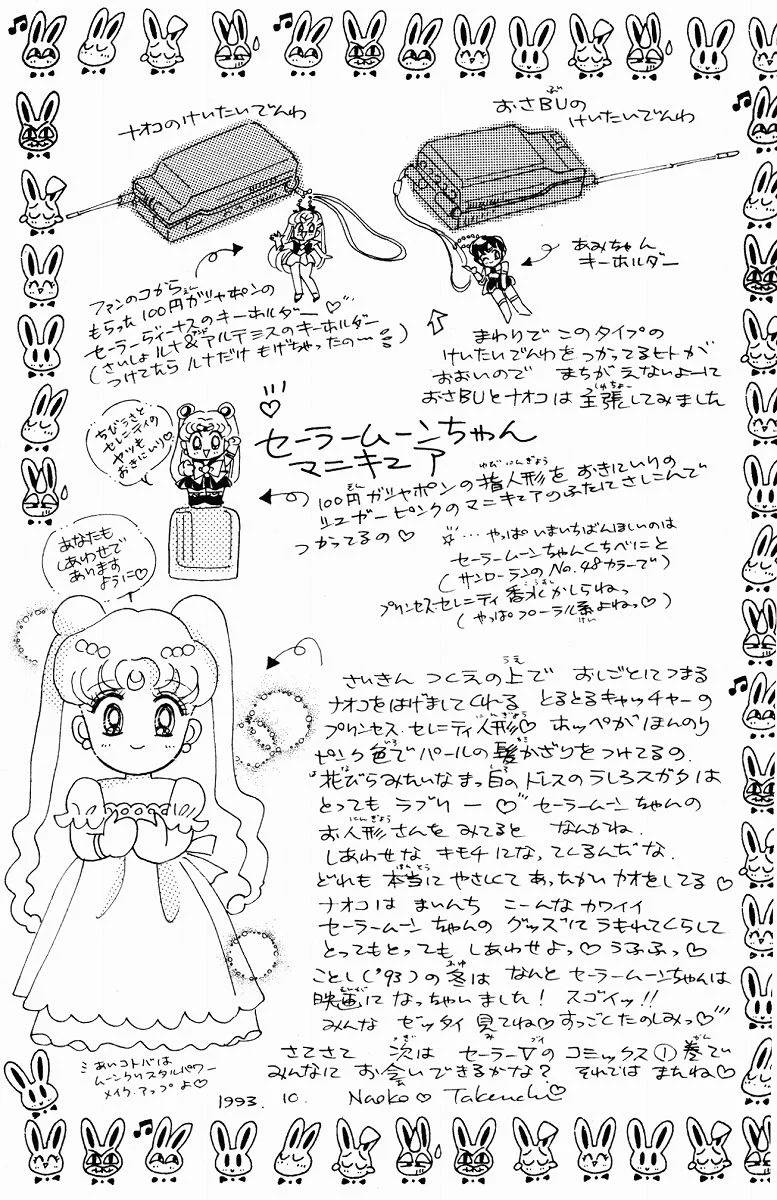 ナオコのけいたいでんわ
おさBUの
けいたいでんわ
あみちゃん
キーホルダー
ファンのコから
もらった100円ガシャポンの
セーラーヴィーナスのキーホルダー♡
(さいしょ ルナ&アルテミスのキーホルダー
つけてたら ルナだけ もげちゃったの〜)
まわりで このタイプの
けいたいでんわを つかってるヒトが
おおいので まちがえないよーに
おさBUとナオコは 主張してみました
ちびうさと
セレニティの
ヤツも
おきにいり♡
セーラームーンちゃん
マニキュア
100円ガシャポンの指人形を おきにいりの
シュガーピンクのマニキュアのふたにさしこんで
つかってるの♡
☆…やっぱ いまいちばんほしいのは
セーラームーンちゃんくちべにと
(サンローランのNo.48カラーで)
プリンセス・セレニティ 香水かしらねっ
(やっぱフローラル系よねっ♡)
あなたも
しあわせで
あります
ように♡
さいきん つくえの上で おしごとにつまる
ナオコをはげましてくれる とるとるキャッチャーの
プリンセス・セレニティ人形♡ ホッペがほんのり
ピンク色でパールの髪かざりをつけてるの.
花びらみたいなまっ白のドレスのうしろスガタは
とっても ラブリー♡ セーラームーンちゃんの
お人形さんを みてると なんかね.
しあわせな キモチになってくるんだな.
どれも 本当に やさしくて あったかい カオをしてる♡
ナオコは まいんち こーんな カワイイ
セーラームーンちゃんの グッズに うもれてくらして
とってもとっても しあわせよっ♡ うふふっ♡
ことし('93)の冬は なんと セーラームーンちゃんは
映画に なっちゃいました! スゴイッ!!
みんな ゼッタイ 見てね♡ すっごくたのしみっ♡
さてさて 次は セーラーVの コミックス①巻で
みんなに お会いできるかな? それでは またね♡
1993. 10. Naoko♡ Takeuchi♡
あいコトバは
ムーンクリスタルパワー
メイク・アップよ♡